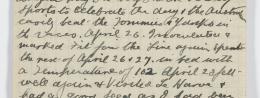 sports to celebrate the day & the Australians
easily beat the Tommies & Yanks in
the races. April 26. Inoculated &
marked Fit for the Line again spent
the rest of April 26 & 27 in bed with
a Temperature of 102 April 28 felt
well again & Visited Le Havre &
had a good